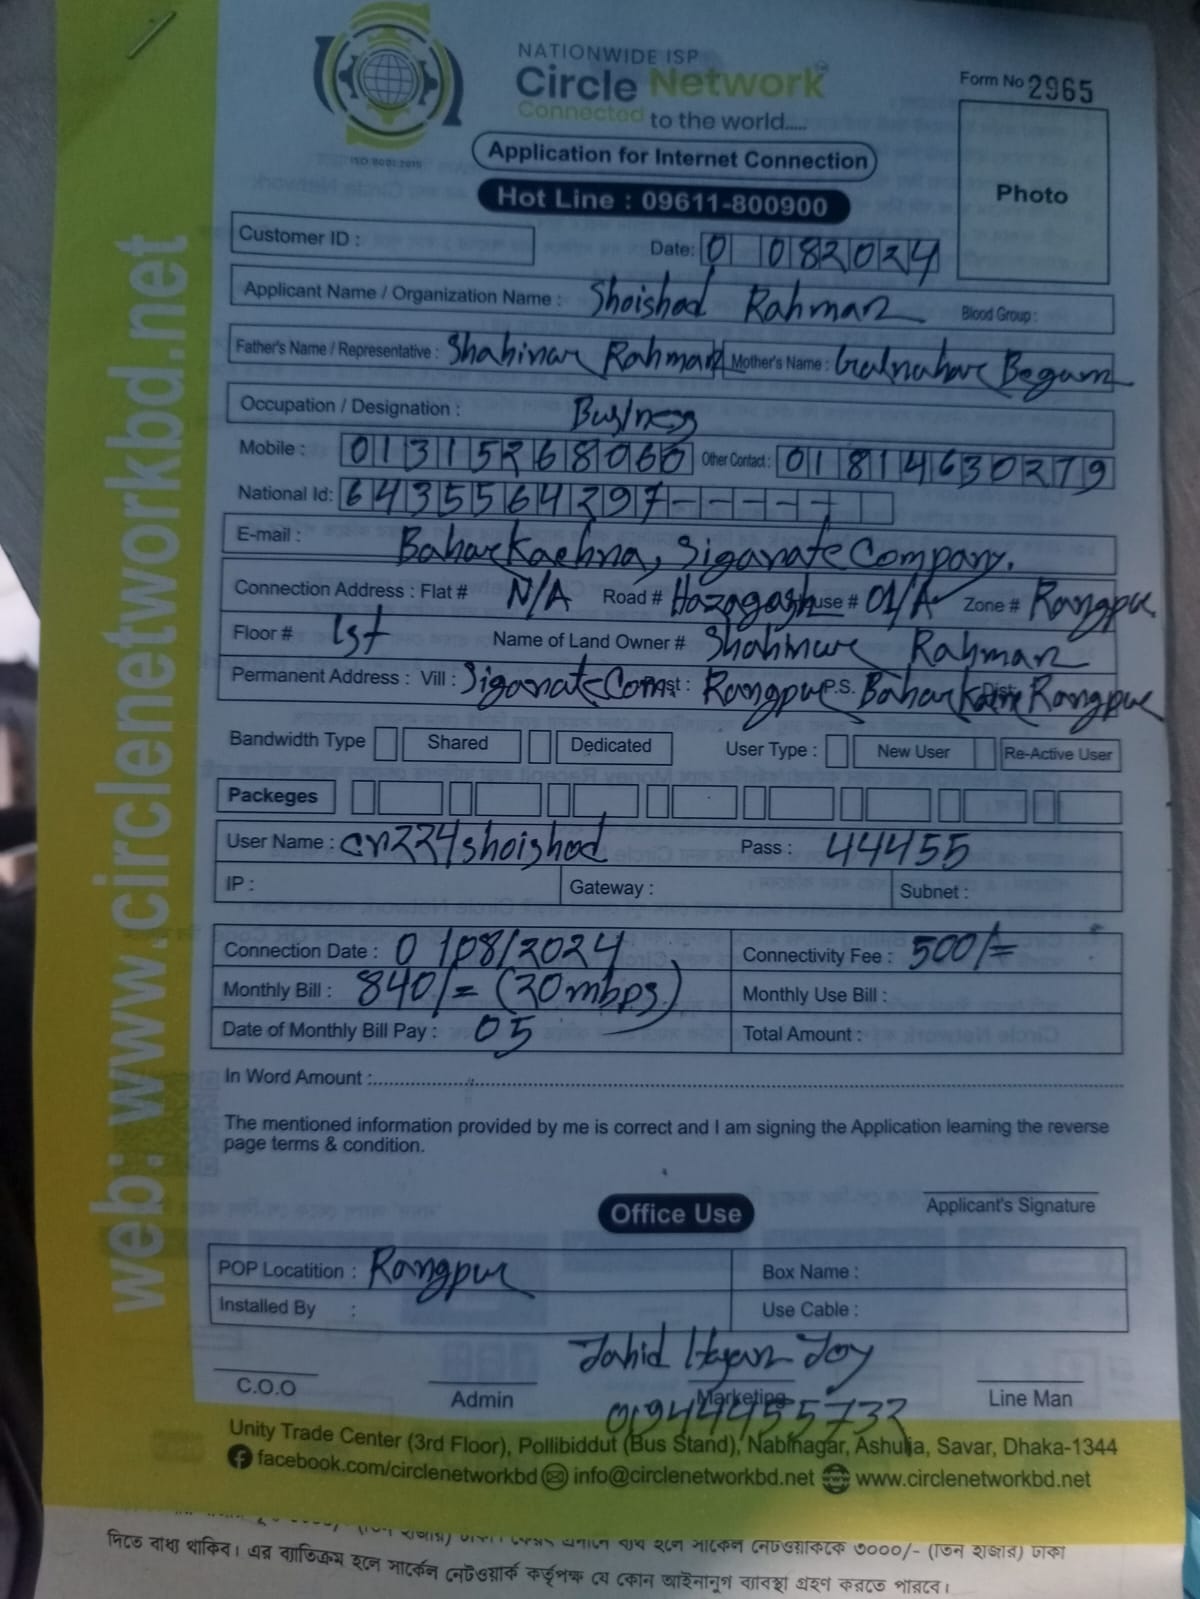 NATIONWIDE ISP
Circle Network
Connected to the world.....
ISO 9001:2015
Form No 2965
Application for Internet Connection
Hot Line : 09611-800900
Photo
web: www.circlenetworkbd.net
Customer ID :
Date: 0 082024
Applicant Name / Organization Name : Shoishod Rahman Blood Group :
Father's Name / Representative : Shahinur Rahman Mother's Name : Gulnahar Begum
Occupation / Designation : Business
Mobile : 01315268060 Other Contact : 01814630279
National Id: 6435564297
E-mail : Baharkachna, Siganate Company.
Connection Address : Flat # N/A Road # Hazagash House # 01/A Zone # Rangpur
Floor # 1st Name of Land Owner # Shahinur Rahman
Permanent Address : Vill : Siganate Com Post : Rangpur P.S. Baharkachna Dist: Rangpur
Bandwidth Type Shared Dedicated User Type : New User Re-Active User
Packeges
User Name : cn224shoishod Pass : 44455
IP : Gateway : Subnet :
Connection Date : 0 108/2024 Connectivity Fee : 500/=
Monthly Bill : 840/= (20mbps) Monthly Use Bill :
Date of Monthly Bill Pay : 05 Total Amount :
In Word Amount :
The mentioned information provided by me is correct and I am signing the Application learning the reverse
page terms & condition.
Applicant's Signature
Office Use
POP Locatition : Rangpur Box Name :
Installed By : Use Cable :
Jahid Hasan Joy
C.O.O Admin Marketing Line Man
Unity Trade Center (3rd Floor), Pollibiddut (Bus Stand), Nabinagar, Ashulia, Savar, Dhaka-1344
facebook.com/circlenetworkbd info@circlenetworkbd.net www.circlenetworkbd.net
দিতে বাধ্য থাকিব। এর ব্যতিক্রম হলে সার্কেল নেটওয়ার্ক কর্তৃপক্ষ যে কোন আইনানুগ ব্যবস্থা গ্রহণ করতে পারবে।